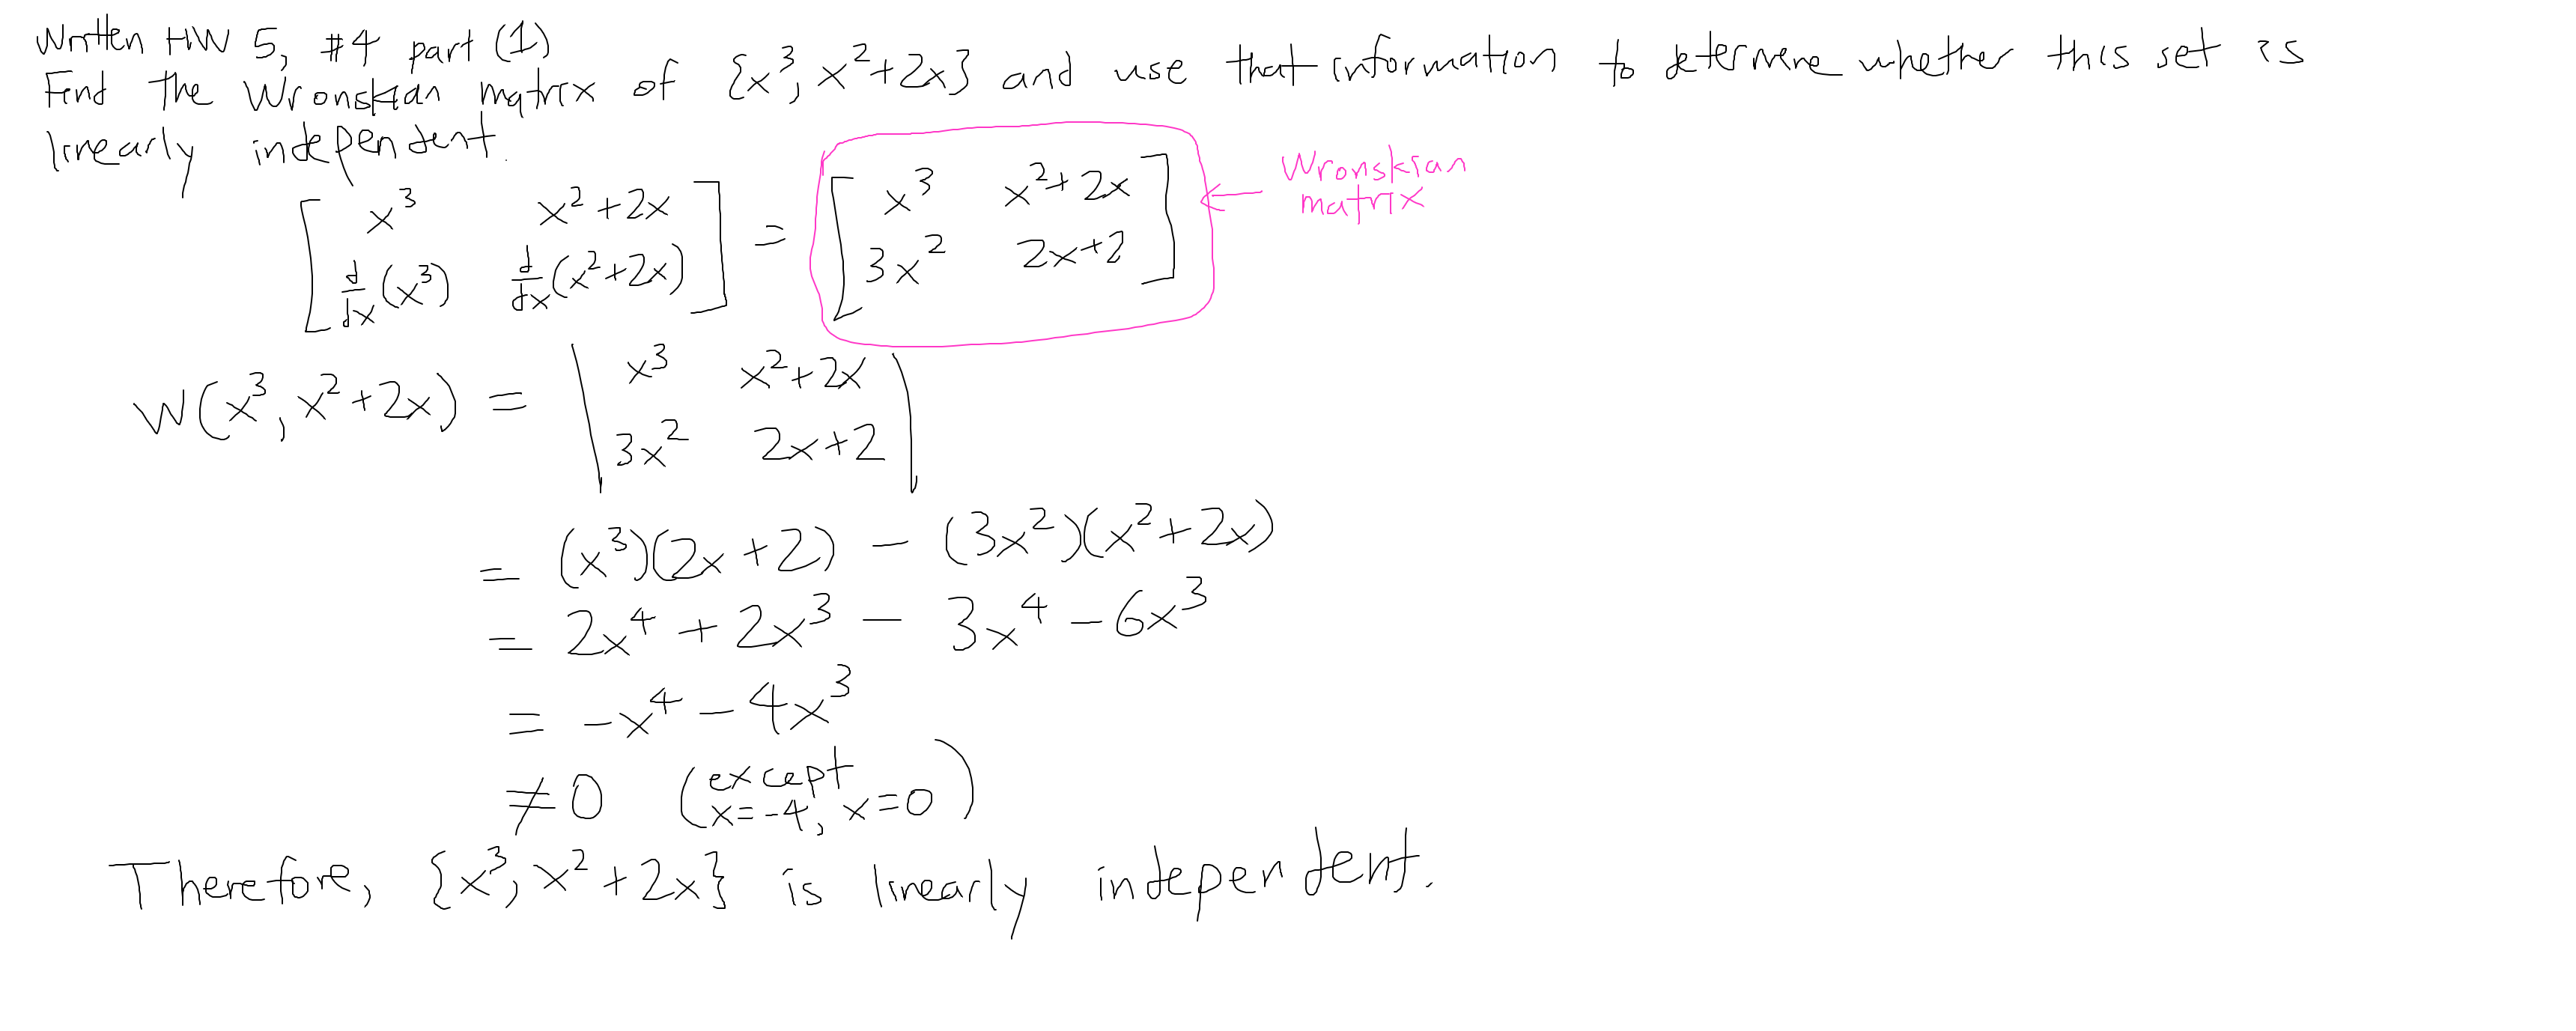 Written HW 5, #4 part (1)
Find the Wronskian matrix of {x³, x²+2x} and use that information to determine whether this set is
linearly independent.
[x³ x²+2x; d/dx(x³) d/dx(x²+2x)] = [x³ x²+2x; 3x² 2x+2] ← Wronskian matrix
W(x³, x²+2x) = |x³ x²+2x; 3x² 2x+2|
= (x³)(2x+2) - (3x²)(x²+2x)
= 2x⁴ + 2x³ - 3x⁴ - 6x³
= -x⁴ - 4x³
≠ 0 (except x=-4, x=0)
Therefore, {x³, x²+2x} is linearly independent.